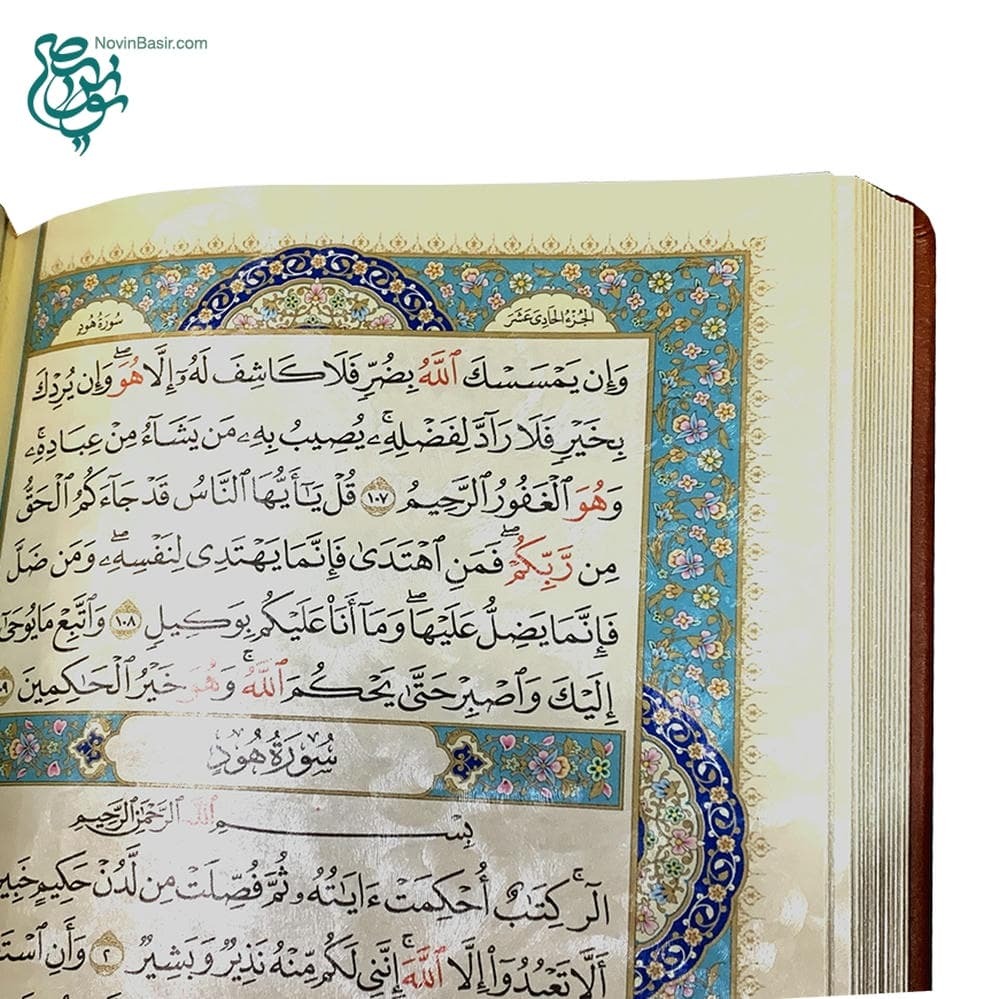 NovinBasir.com
الجزء الحادی عشر
سورة هود
وَإِن يَمْسَسْكَ ٱللَّهُ بِضُرٍّ فَلَا كَاشِفَ لَهُۥٓ إِلَّا هُوَ ۖ وَإِن يُرِدْكَ
بِخَيْرٍ فَلَا رَآدَّ لِفَضْلِهِۦ ۚ يُصِيبُ بِهِۦ مَن يَشَآءُ مِنْ عِبَادِهِۦ ۚ
وَهُوَ ٱلْغَفُورُ ٱلرَّحِيمُ ١٠٧ قُلْ يَٰٓأَيُّهَا ٱلنَّاسُ قَدْ جَآءَكُمُ ٱلْحَقُّ
مِن رَّبِّكُمْ ۖ فَمَنِ ٱهْتَدَىٰ فَإِنَّمَا يَهْتَدِى لِنَفْسِهِۦ ۖ وَمَن ضَلَّ
فَإِنَّمَا يَضِلُّ عَلَيْهَا ۖ وَمَآ أَنَا۠ عَلَيْكُم بِوَكِيلٍ ١٠٨ وَٱتَّبِعْ مَا يُوحَىٰٓ
إِلَيْكَ وَٱصْبِرْ حَتَّىٰ يَحْكُمَ ٱللَّهُ ۚ وَهُوَ خَيْرُ ٱلْحَٰكِمِينَ
سُورَةُ هُودٍ
بِسْمِ ٱللَّهِ ٱلرَّحْمَٰنِ ٱلرَّحِيمِ
الٓر ۚ كِتَٰبٌ أُحْكِمَتْ ءَايَٰتُهُۥ ثُمَّ فُصِّلَتْ مِن لَّدُنْ حَكِيمٍ
أَلَّا تَعْبُدُوٓا۟ إِلَّا ٱللَّهَ ۚ إِنَّنِى لَكُم مِّنْهُ نَذِيرٌ وَبَشِيرٌ ٢ وَأَنِ